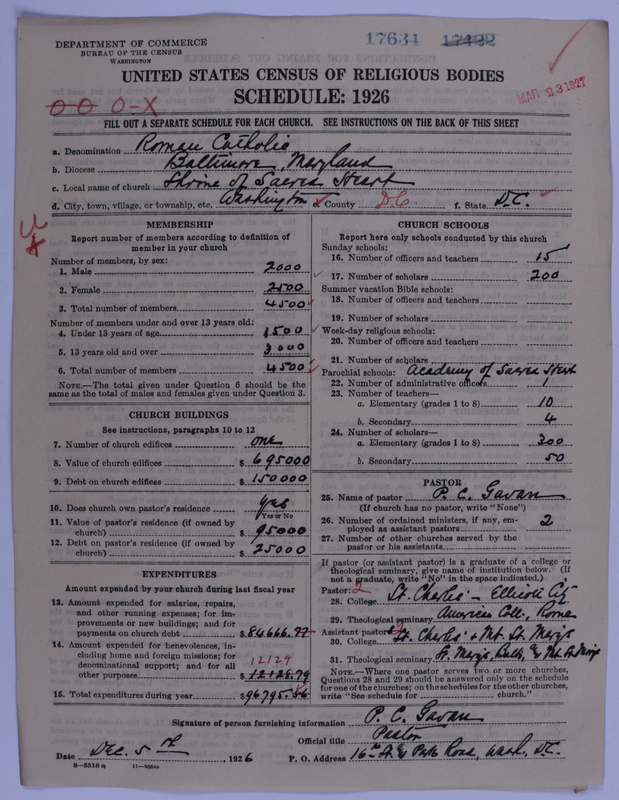 DEPARTMENT OF COMMERCE
BUREAU OF THE CENSUS
WASHINGTON
17634 17432
MAR 23 1927
UNITED STATES CENSUS OF RELIGIOUS BODIES
SCHEDULE: 1926
O O O-X
FILL OUT A SEPARATE SCHEDULE FOR EACH CHURCH. SEE INSTRUCTIONS ON THE BACK OF THIS SHEET
a. Denomination Roman Catholic
b. Diocese Baltimore, Maryland
c. Local name of church Shrine of Sacred Heart
d. City, town, village, or township, etc. Washington e. County D.C. f. State D.C.
MEMBERSHIP
Report number of members according to definition of
member in your church
Number of members, by sex:
1. Male 2000
2. Female 2500
3. Total number of members 4500
Number of members under and over 13 years old:
4. Under 13 years of age 1500
5. 13 years old and over 3000
6. Total number of members 4500
NOTE.—The total given under Question 6 should be
same as the total of males and females given under Question 3.
CHURCH BUILDINGS
See instructions, paragraphs 10 to 12
7. Number of church edifices one
8. Value of church edifices $ 695000
9. Debt on church edifices $ 150000
10. Does church own pastor's residence yes
Yes or No
11. Value of pastor's residence (if owned by
church) $ 95000
12. Debt on pastor's residence (if owned by
church) $ 25000
EXPENDITURES
Amount expended by your church during last fiscal year
13. Amount expended for salaries, repairs,
and other running expenses; for im-
provements or new buildings; and for
payments on church debt $ 84666.77
14. Amount expended for benevolences, in-
cluding home and foreign missions; for
denominational support; and for all
12129
other purposes $ 12128.79
15. Total expenditures during year $ 96795.56
CHURCH SCHOOLS
Report here only schools conducted by this church
Sunday schools:
16. Number of officers and teachers 15
17. Number of scholars 200
Summer vacation Bible schools:
18. Number of officers and teachers
19. Number of scholars
Week-day religious schools:
20. Number of officers and teachers
21. Number of scholars
Parochial schools: Academy of Sacred Heart
22. Number of administrative officers 1
23. Number of teachers—
a. Elementary (grades 1 to 8) 10
b. Secondary 4
24. Number of scholars—
a. Elementary (grades 1 to 8) 300
b. Secondary 50
PASTOR
25. Name of pastor P. C. Gavan
(If church has no pastor, write "None")
26. Number of ordained ministers, if any, em-
ployed as assistant pastors 2
27. Number of other churches served by the
pastor or his assistants
If pastor (or assistant pastor) is a graduate of a college or
theological seminary, give name of institution below. (If
not a graduate, write "No" in the space indicated.)
Pastor: 2
28. College St. Charles - Ellicott City
29. Theological seminary American Coll., Rome
Assistant pastor: 2
30. College St. Charles & Mt. St. Mary's
31. Theological seminary St. Mary's, Balto, & Mt. St. Marys
NOTE.—Where one pastor serves two or more churches,
Questions 28 and 29 should be answered only on the schedule
for one of the churches; on the schedules for the other churches,
write "See schedule for church."
Signature of person furnishing information P. C. Gavan
Official title Pastor
Date Dec. 5th, 1926 P. O. Address 16th St. & Park Road, Wash. D.C.
8-5518a 11-9664a